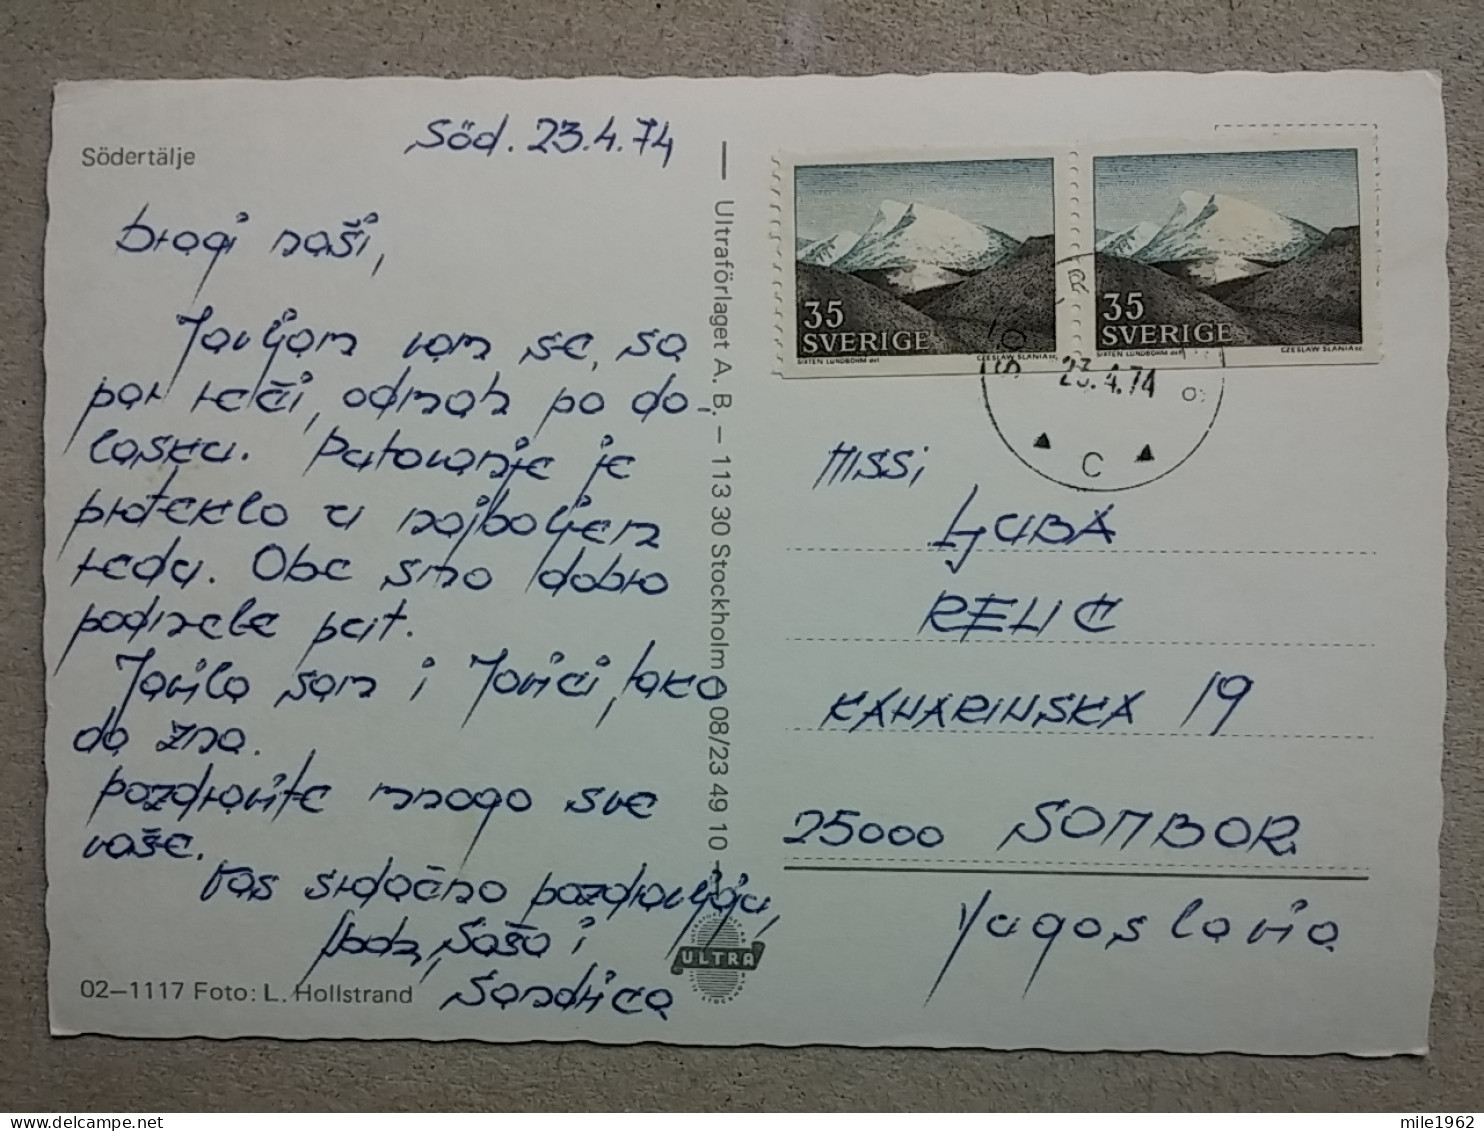 Södertälje
Söd. 23.4.74
Dragi naši,
Javljam vam se, sa
par reči, odmah po do,
lasku. Putovanje je
proteklo u najboljem
redu. Obe smo dobro
podnele put.
Javila sam i Jovici, tako
da zna.
Pozdravite mnogo sve
vaše.
Vas srdačno pozdravljaju,
Saša i
Sandica
02–1117 Foto: L. Hollstrand
Ultraförlaget A.B. – 113 30 Stockholm – 08/23 49 10
ULTRA
35
SVERIGE
SIXTEN LUNDBOHM del.
CZESLAW SLANIA sc.
35
SVERIGE
SIXTEN LUNDBOHM del.
CZESLAW SLANIA sc.
23.4.74
C
MISSI
LJUBA
RELIĆ
19
25000 SOMBOR
Yugoslavia
mile1962